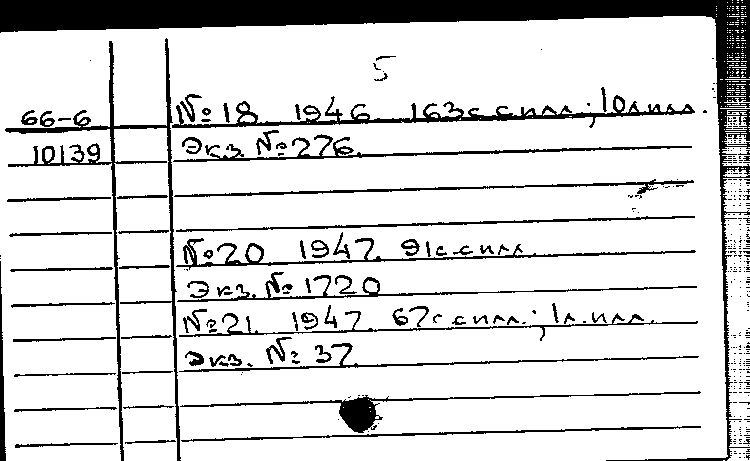 5
66-6 №18 1946 163с с илл.; 10л илл.
10139 Экз. №276.
№20 1947. 91с. с илл.
Экз. № 1720
№21. 1947. 67с с илл.; 1л. илл.
Экз. № 37.